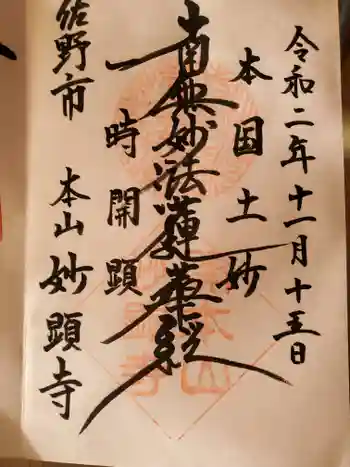 令和二年十一月十五日
本国土妙
南無妙法蓮華経
時開顕
佐野市 本山 妙顕寺